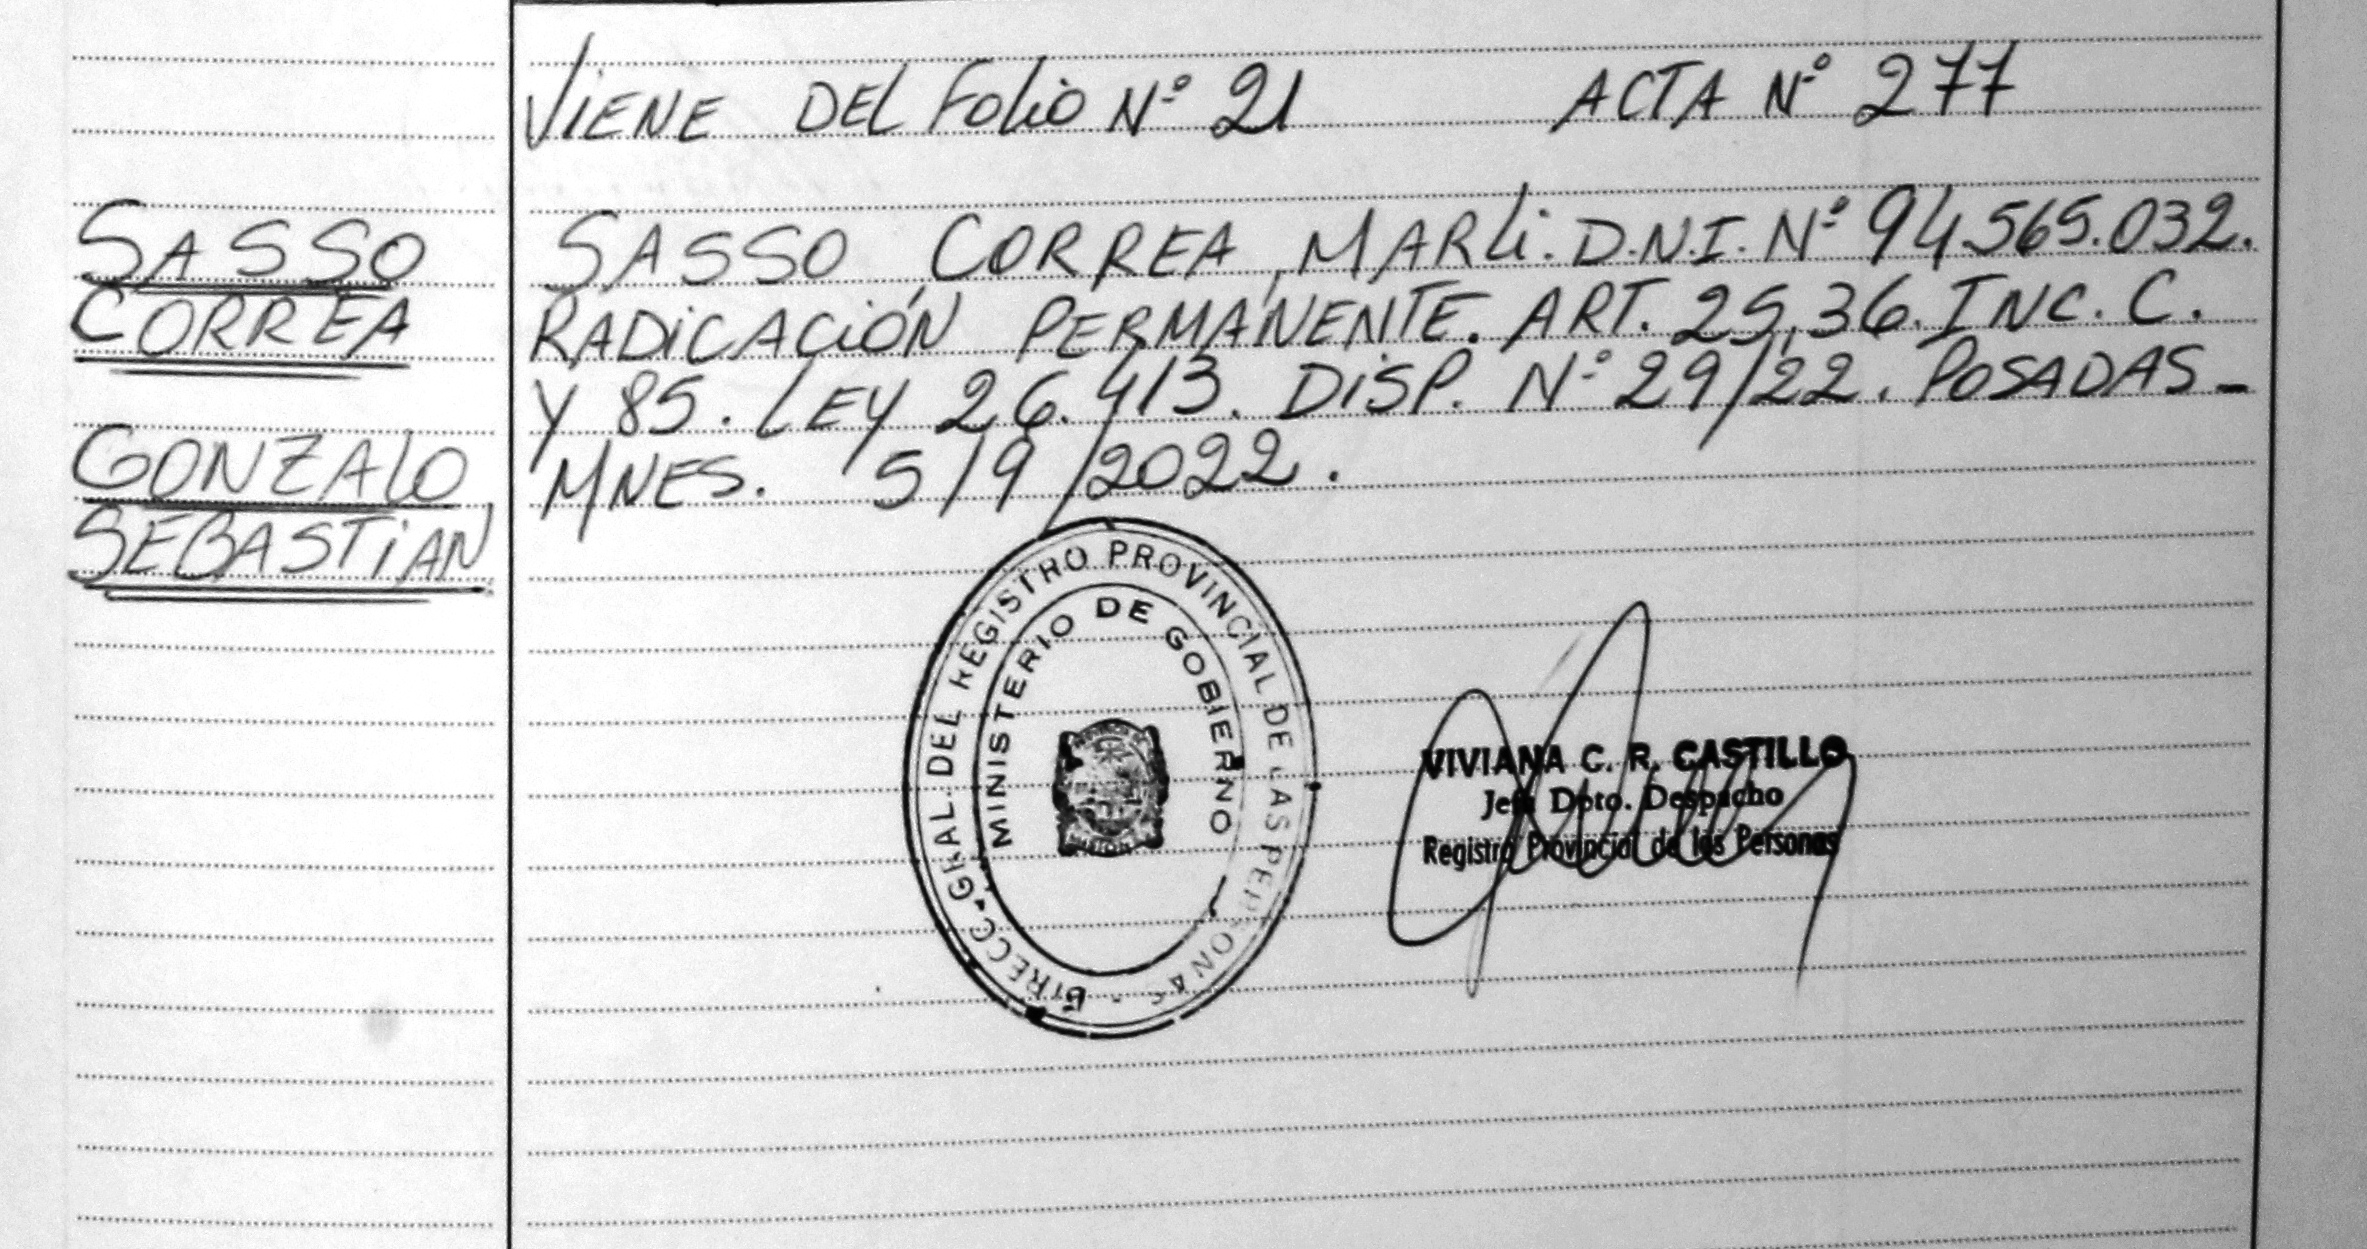 VIENE DEL FOLIO Nº 21 ACTA Nº 277
SASSO
CORREA
GONZALO
SEBASTIAN
SASSO CORREA, MARLI. D.N.I. Nº 94.565.032.
RADICACIÓN PERMANENTE. ART. 25, 36. INC. C.
Y 85. LEY 26.413. DISP. Nº 29/22. POSADAS-
MNES. 5/9/2022.
DIRECC. GRAL. DEL REGISTRO PROVINCIAL DE LAS PERSONAS -
MINISTERIO DE GOBIERNO
VIVIANA C. R. CASTILLO
Jefa Dpto. Despacho
Registro Provincial de las Personas